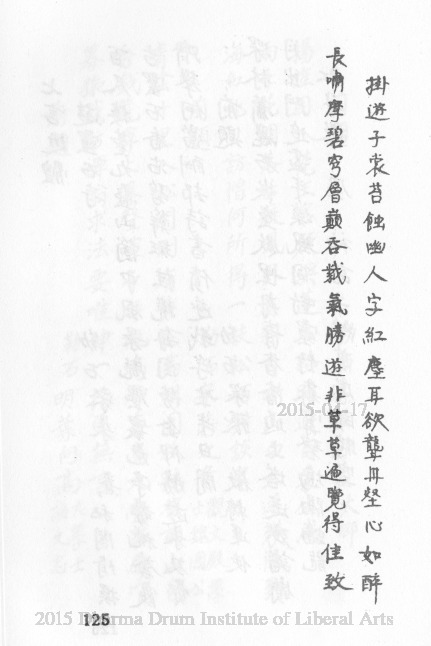 掛遊子裳苔蝕幽人字紅塵耳欲聾丹壑心如醉
長嘯摩碧穹層巔吞栽氣勝遊非草草遍覽得佳致
2015-04-17
125
2015 Dharma Drum Institute of Liberal Arts